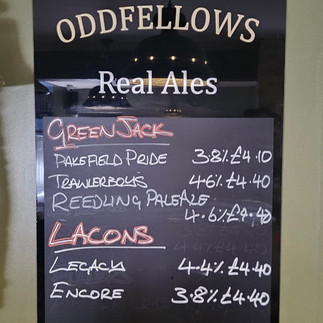 ODDFELLOWS
Real Ales
GREEN JACK
PAKEFIELD PRIDE 3.8% £4.10
TRAWLERBOYS 4.6% £4.40
REEDLING PALE ALE
4.6% £4.40
LACONS
LEGACY 4.4% £4.40
ENCORE 3.8% £4.40